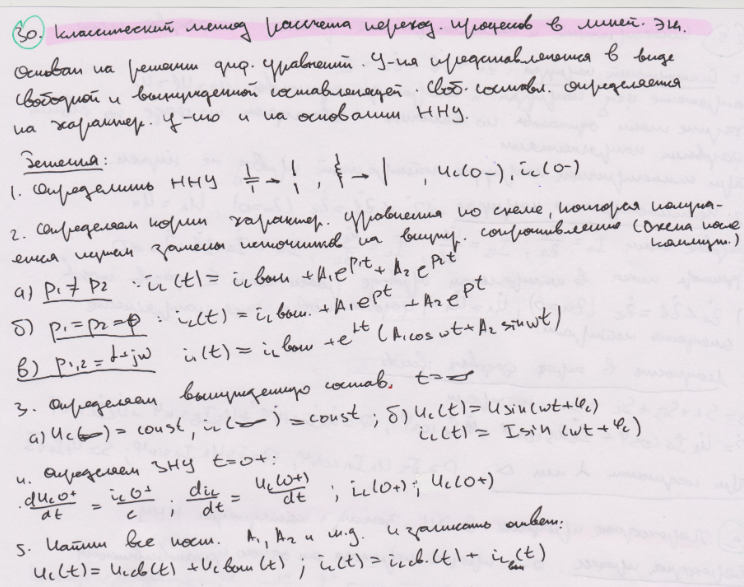 30. Классический метод рассчета переход. процесов в линей. эц.
Основан на решении диф. уравнений. У-ия представляются в виде
свободной и вынужденной составляющей. Своб. составл. определяется
на характер. у-ию и на основании ННУ.
Решения:
1. Определить ННУ → , → , Uc(0-), iL(0-)
2. Определяем корни характер. уравнения по схеме, которая получа-
ется путем замены источников на внутр. сопротивление (схема после
коммут.)
а) p1 ≠ p2 : iL(t) = iL вын + A1e^p1t + A2e^p2t
б) p1 = p2 = p : iL(t) = iL вын. + A1e^pt + A2e^pt
в) p1,2 = α+jω iL(t) = iL вын + e^αt (A1cos ωt + A2 sin ωt)
3. Определяем вынужденную состав. t=∞
а) Uc(∞) = const, iL(∞) = const; б) Uc(t) = U sin(ωt+φc)
iL(t) = I sin(ωt+φc)
4. Определяем ЗНУ t=0+:
dUc0+/dt = ic0+/c ; diL/dt = UL(0+)/dt ; iL(0+); Uc(0+)
5. Найти все пост. A1, A2 и т.д. и записать ответ:
Uc(t) = Uсв(t) + Uc вын(t) ; iL(t) = iLсв.(t) + iL вын(t)